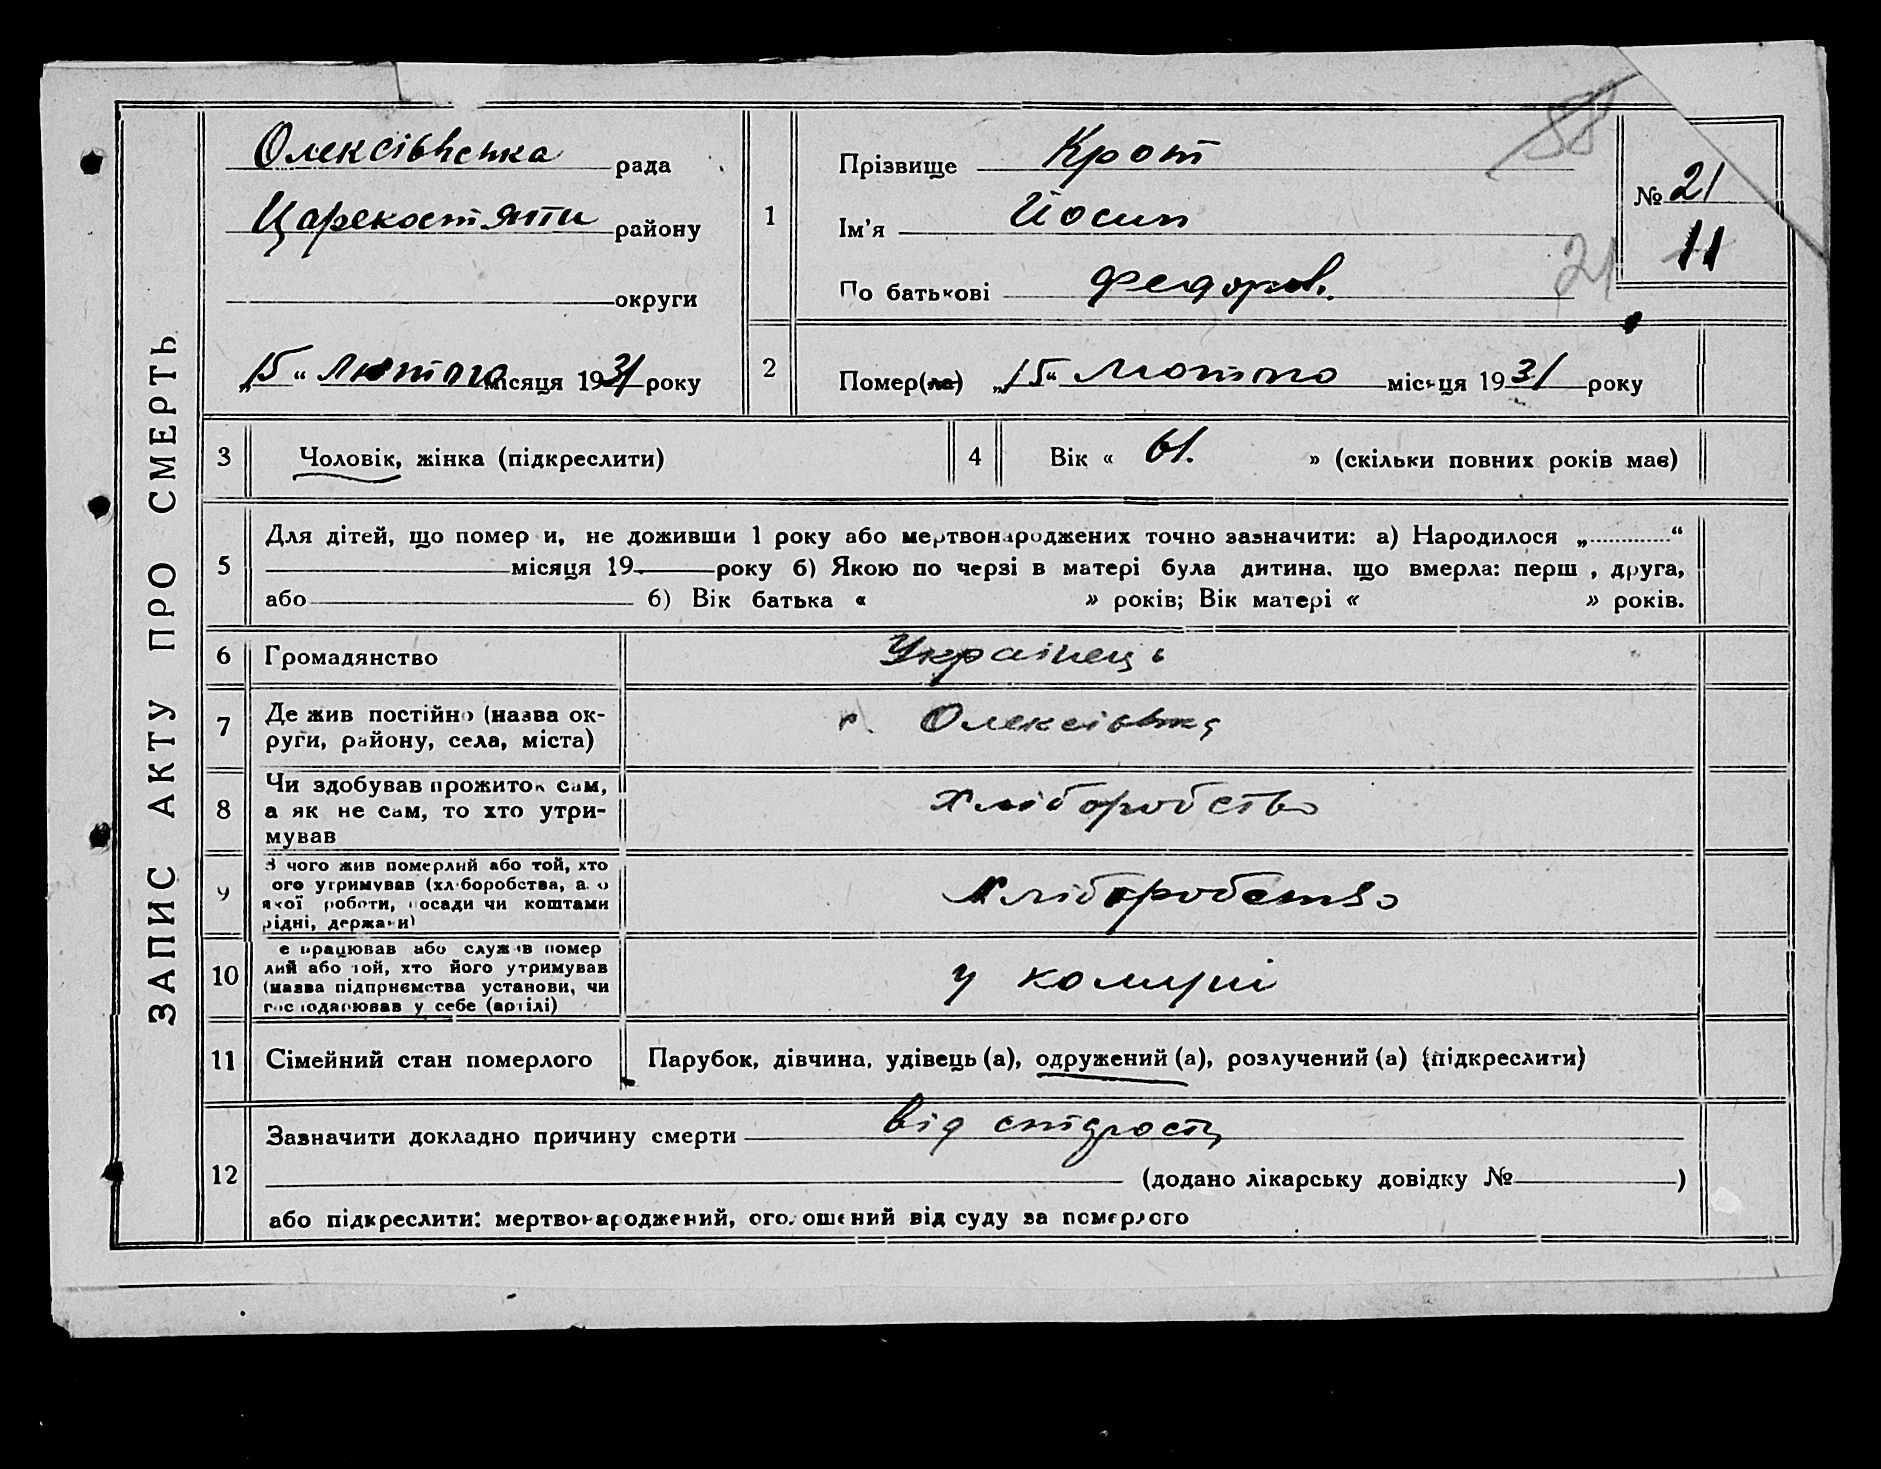 ЗАПИС АКТУ ПРО СМЕРТЬ
Олексіївська рада
району
округи
„15“ Лютого місяця 1931 року
1
Прізвище Крот
Ім'я Йосип
По батькові Федоров.
58
21
№ 21
11
2
Помер(ла) „15“ Лютого місяця 1931 року
3 Чоловік, жінка (підкреслити)
4 Вік « 61. » (скільки повних років має)
5
Для дітей, що помер и, не доживши 1 року або мертвонароджених точно зазначити: а) Народилося „............“
місяця 19 року б) Якою по черзі в матері була дитина, що вмерла: перш , друга,
або б) Вік батька « » років; Вік матері « » років.
6 Громадянство Українець
7 Де жив постійно (назва ок-
руги, району, села, міста)
Олексіївка
8 Чи здобував прожиток сам,
а як не сам, то хто утри-
мував
Хліборобство
9 З чого жив померлий або той, хто
ого утримував (хліборобства, або
якої роботи, посади чи коштами
рідні, держави)
Хліборобство
10 е працював або служив помер
лий або той, хто його утримував
(назва підприємства установи, чи
господарював у себе (артілі)
у комуні
11 Сімейний стан померлого Парубок, дівчина, удівець (а), одружений (а), розлучений (а) (підкреслити)
12
Зазначити докладно причину смерти від старости
(додано лікарську довідку № )
або підкреслити: мертвонароджений, оголошений від суду за померлого